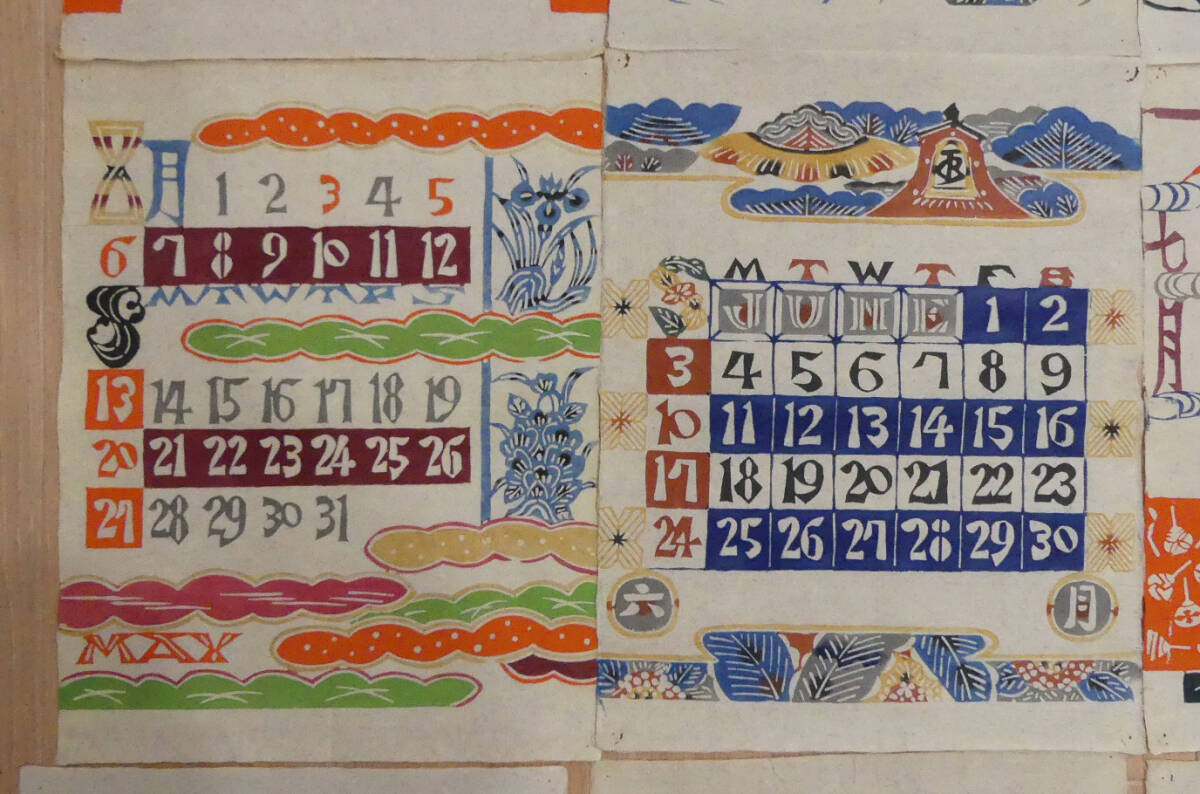 五月 1 2 3 4 5
6 7 8 9 10 11 12
S M T W T F S
13 14 15 16 17 18 19
20 21 22 23 24 25 26
27 28 29 30 31
MAY
S M T W T F S
JUNE 1 2
3 4 5 6 7 8 9
10 11 12 13 14 15 16
17 18 19 20 21 22 23
24 25 26 27 28 29 30
六月
七月